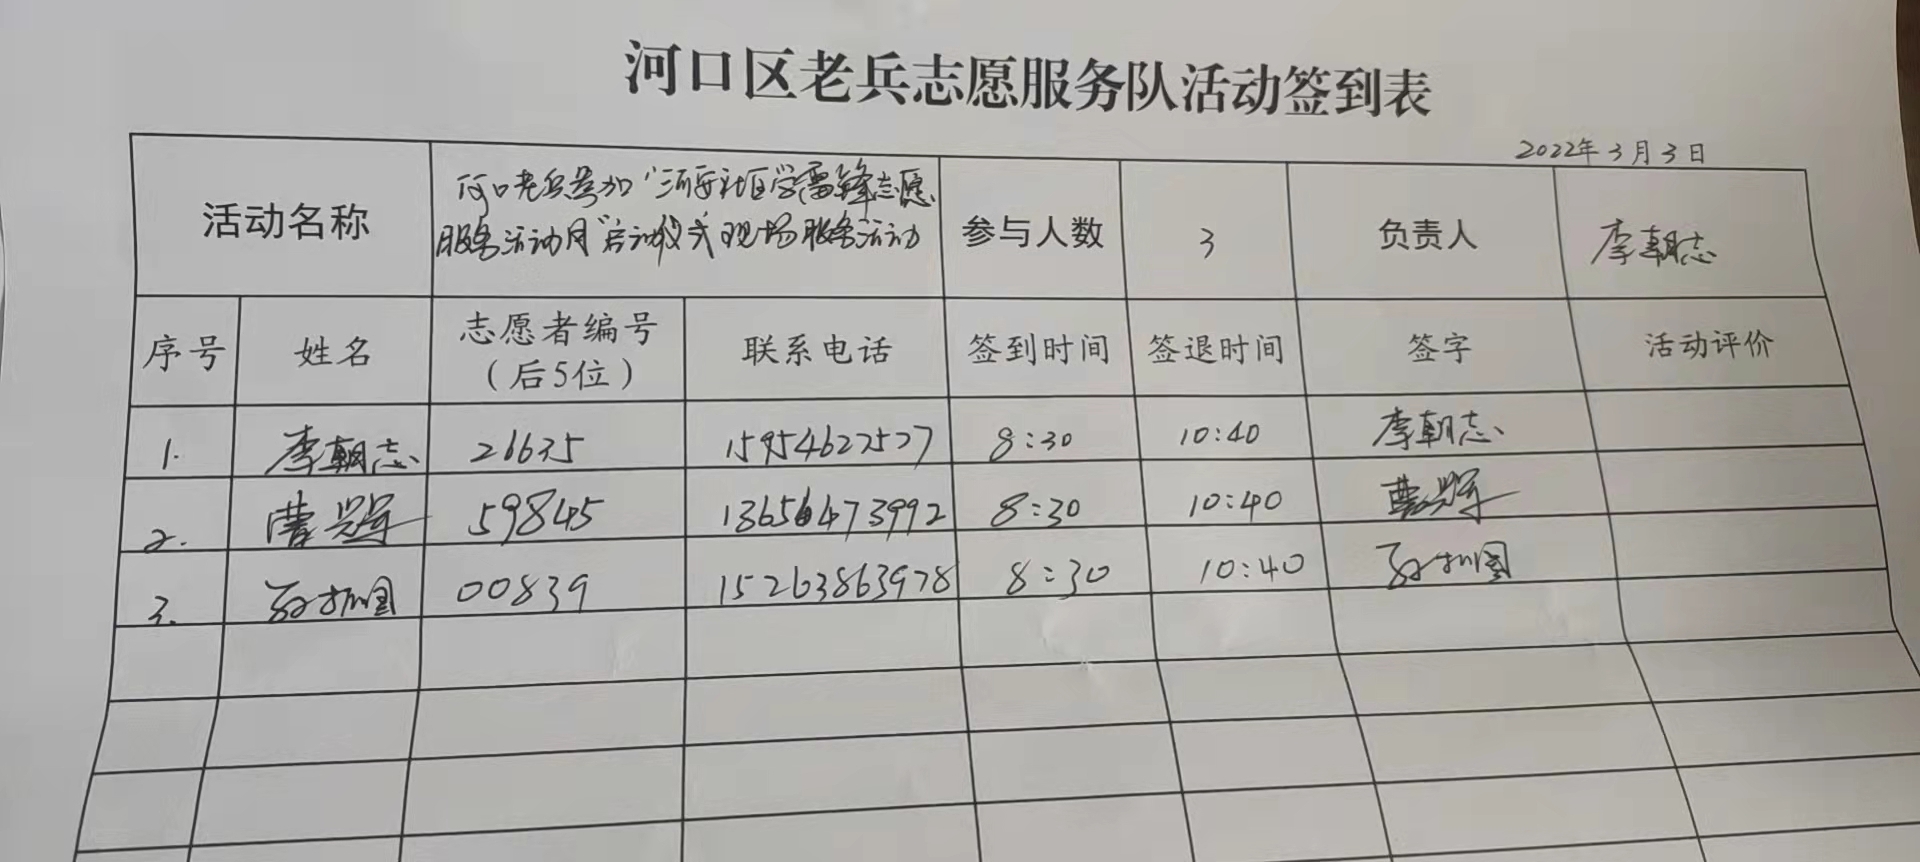 河口区老兵志愿服务队活动签到表
2022年3月3日
活动名称 河口老兵参加"河安社区学雷锋志愿 参与人数 3 负责人 李朝志
服务活动月"启动仪式现场服务活动
序号 姓名 志愿者编号 联系电话 签到时间 签退时间 签字 活动评价
(后5位)
1. 李朝志 26635 15954627577 8:30 10:40 李朝志
2. 曹 59845 13656473992 8:30 10:40 曹
3. 00839 15263863978 8:30 10:40